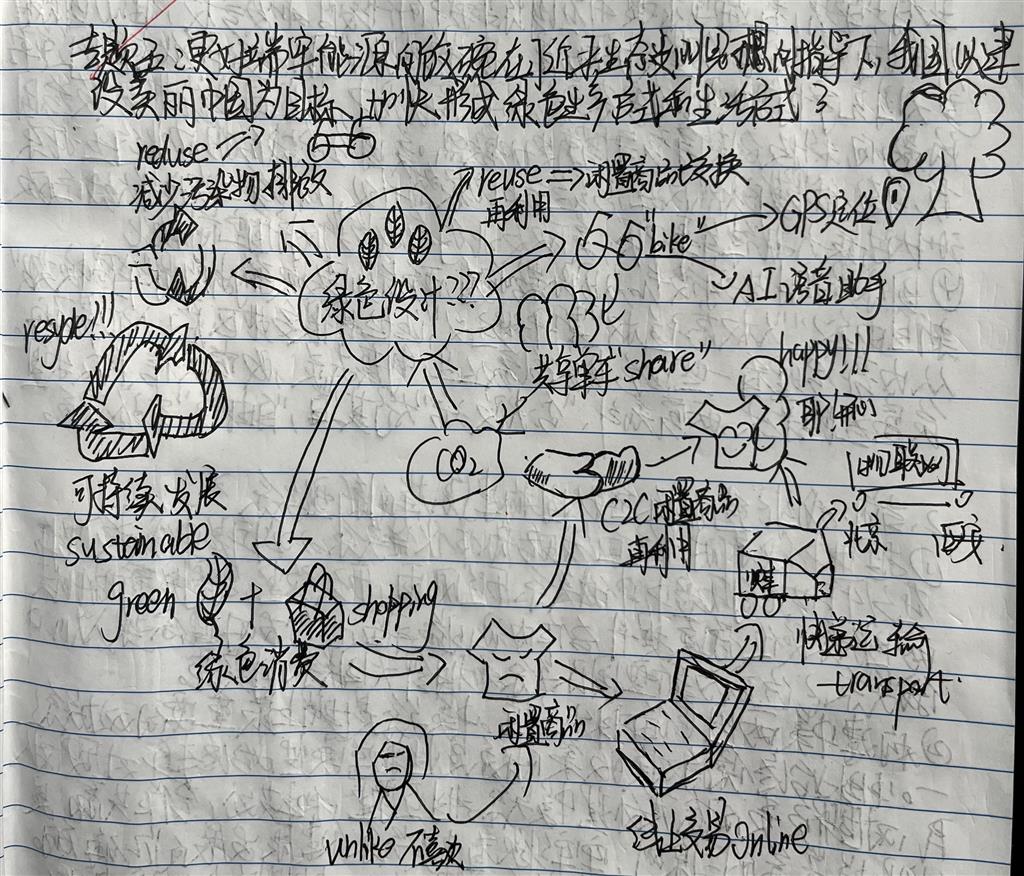 能源
在
生态
指导下，我国以建
设美丽中国为目标，加快形成绿色生产方式和生活方式？
reduse
减少污染物排放
reuse 闲置商品交换
再利用
"bike"
GPS定位
AI语音助手
绿色设计???
resycle!!!
共享单车"share"
happy!!!
耶 开心
CO2
可持续发展
sustainable
C2C闲置商品
再利用
北京
西安
green + shopping
绿色消费
快递运输
transport.
闲置商品
unlike 不喜欢
线上交易Online